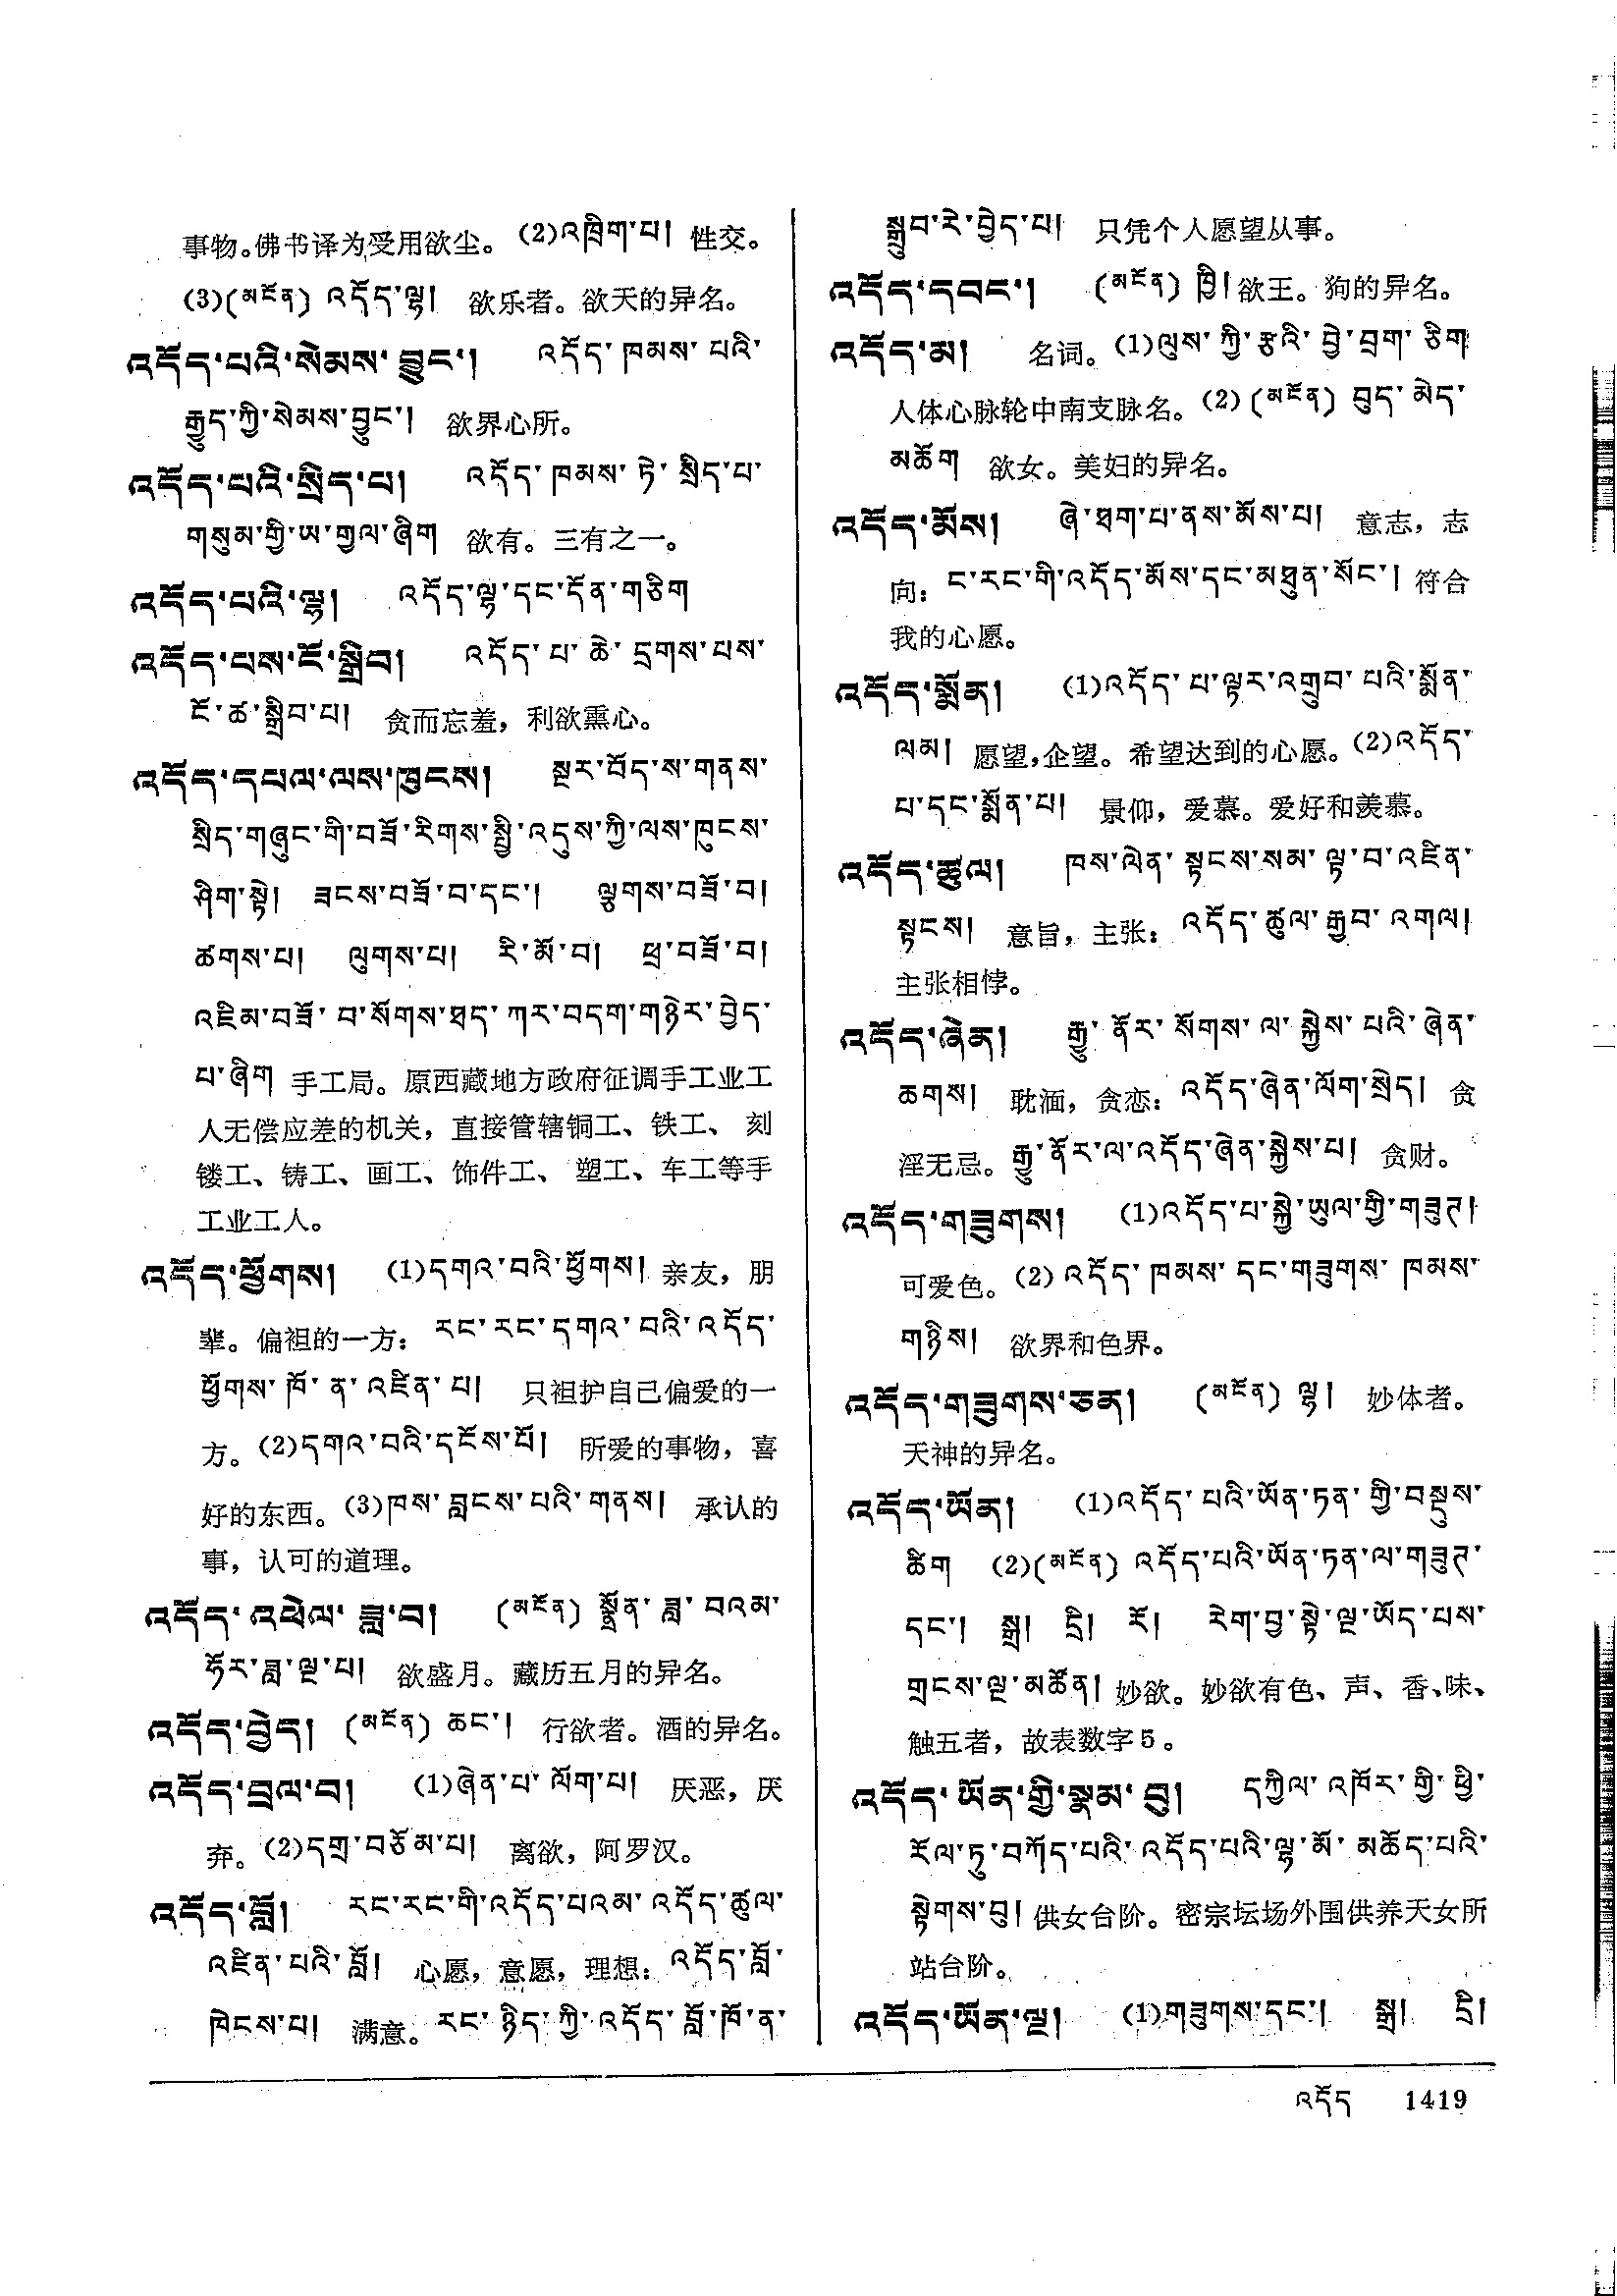 事物。佛书译为受用欲尘。(2)འཁྲིག་པ། 性交。
(3)(མངོན) འདོད་ལྷ། 欲乐者。欲天的异名。
འདོད་པའི་སེམས་བྱུང་། འདོད་ཁམས་པའི་
རྒྱུད་ཀྱི་སེམས་བྱུང་། 欲界心所。
འདོད་པའི་སྲིད་པ། འདོད་ཁམས་ཏེ་སྲིད་པ་
གསུམ་གྱི་ཡ་གྱལ་ཞིག 欲有。三有之一。
འདོད་པའི་ལྷ། འདོད་ལྷ་དང་དོན་གཅིག
འདོད་པས་ངོ་སྒྲིབ། འདོད་པ་ཆེ་དྲགས་པས་
ངོ་ཚ་སྒྲིབ་པ། 贪而忘羞，利欲熏心。
འདོད་དཔལ་ལས་ཁུངས། སྔར་བོད་ས་གནས་
སྲིད་གཞུང་གི་བཟོ་རིགས་སྤྱི་འདུས་ཀྱི་ལས་ཁུངས་
ཤིག་སྟེ། ཟངས་བཟོ་བ་དང་། ལྕགས་བཟོ་བ།
ཚགས་པ། ལུགས་པ། རི་མོ་བ། ཕྲ་བཟོ་བ།
འཇིམ་བཟོ་བ་སོགས་ཐད་ཀར་བདག་གཉེར་བྱེད་
པ་ཞིག 手工局。原西藏地方政府征调手工业工
人无偿应差的机关，直接管辖铜工、铁工、刻
镂工、铸工、画工、饰件工、塑工、车工等手
工业工人。
འདོད་ཕྱོགས། (1)དགའ་བའི་ཕྱོགས། 亲友，朋
辈。偏袒的一方：རང་རང་དགའ་བའི་འདོད་
ཕྱོགས་ཁོ་ན་འཛིན་པ། 只袒护自己偏爱的一
方。(2)དགའ་བའི་དངོས་པོ། 所爱的事物，喜
好的东西。(3)ཁས་བླངས་པའི་གནས། 承认的
事，认可的道理。
འདོད་འཕེལ་ཟླ་བ། (མངོན) སྣྲོན་ཟླ་བའམ་
ཧོར་ཟླ་ལྔ་པ། 欲盛月。藏历五月的异名。
འདོད་བྱེད། (མངོན) ཆང་། 行欲者。酒的异名。
འདོད་བྲལ་བ། (1)ཞེན་པ་ལོག་པ། 厌恶，厌
弃。(2)དགྲ་བཅོམ་པ། 离欲，阿罗汉。
འདོད་བློ། རང་རང་གི་འདོད་པའམ་འདོད་ཚུལ་
འཛིན་པའི་བློ། 心愿，意愿，理想：འདོད་བློ་
ཁེངས་པ། 满意。རང་ཉིད་ཀྱི་འདོད་བློ་ཁོ་ན་
སྒྲུབ་རེ་བྱེད་པ། 只凭个人愿望从事。
འདོད་དབང་། (མངོན) ཁྱི། 欲王。狗的异名。
འདོད་མ། 名词。(1)ལུས་ཀྱི་རྩའི་བྱེ་བྲག་ཅིག
人体心脉轮中南支脉名。(2)(མངོན) བུད་མེད་
མཆོག 欲女。美妇的异名。
འདོད་མོས། ཞེ་ཐག་པ་ནས་མོས་པ། 意志，志
向：ང་རང་གི་འདོད་མོས་དང་མཐུན་སོང་། 符合
我的心愿。
འདོད་སྨོན། (1)འདོད་པ་ལྟར་འགྲུབ་པའི་སྨོན་
ལམ། 愿望，企望。希望达到的心愿。(2)འདོད་
པ་དང་སྨོན་པ། 景仰，爱慕。爱好和羡慕。
འདོད་ཚུལ། ཁས་ལེན་སྟངས་སམ་ལྟ་བ་འཛིན་
སྟངས། 意旨，主张：འདོད་ཚུལ་རྒྱབ་འགལ།
主张相悖。
འདོད་ཞེན། རྒྱུ་ནོར་སོགས་ལ་སྐྱེས་པའི་ཞེན་
ཆགས། 耽湎，贪恋：འདོད་ཞེན་ལོག་སྲེད། 贪
淫无忌。རྒྱུ་ནོར་ལ་འདོད་ཞེན་སྐྱེས་པ། 贪财。
འདོད་གཟུགས། (1)འདོད་པ་སྐྱེ་ཡུལ་གྱི་གཟུཊ།
可爱色。(2)འདོད་ཁམས་དང་གཟུགས་ཁམས་
གཉིས། 欲界和色界。
འདོད་གཟུགས་ཅན། (མངོན) ལྷ། 妙体者。
天神的异名。
འདོད་ཡོན། (1)འདོད་པའི་ཡོན་ཏན་གྱི་བསྡུས་
ཚིག (2)(མངོན) འདོད་པའི་ཡོན་ཏན་ལ་གཟུཊ་
དང་། སྒྲ། དྲི། རོ། རེག་བྱ་སྟེ་ལྔ་ཡོད་པས་
གྲངས་ལྔ་མཚོན། 妙欲。妙欲有色、声、香、味、
触五者，故表数字5。
འདོད་ཡོན་གྱི་སྣམ་བུ། དཀྱིལ་འཁོར་གྱི་ཕྱི་
རོལ་ཏུ་བཀོད་པའི་འདོད་པའི་ལྷ་མོ་མཆོད་པའི་
སྟེགས་བུ། 供女台阶。密宗坛场外围供养天女所
站台阶。
འདོད་ཡོན་ལྔ། (1)གཟུགས་དང་། སྒྲ། དྲི།
འདོད 1419